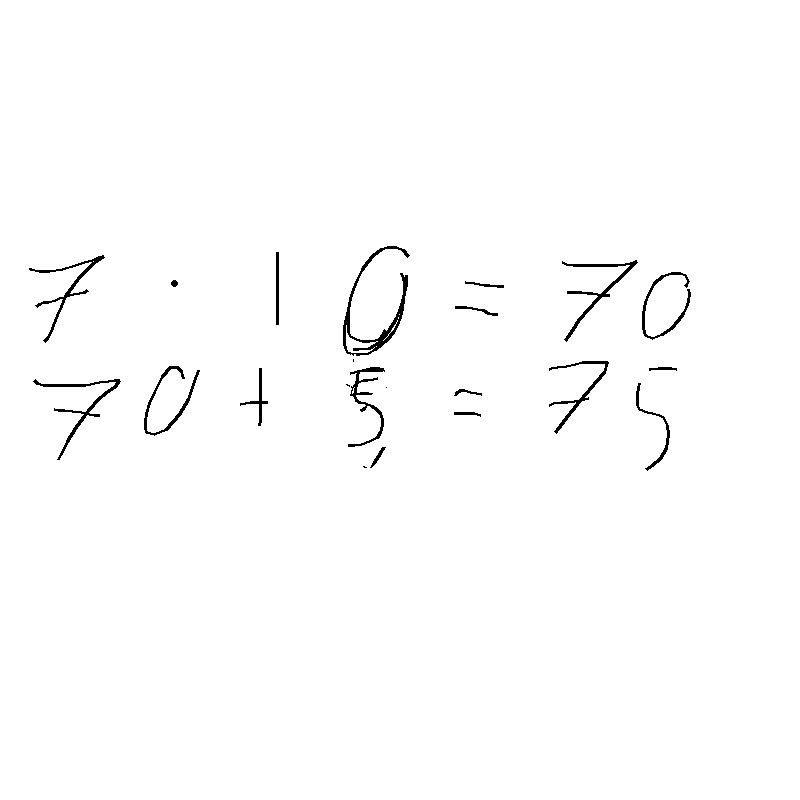 7 · 10 = 70
70 + 5 = 75